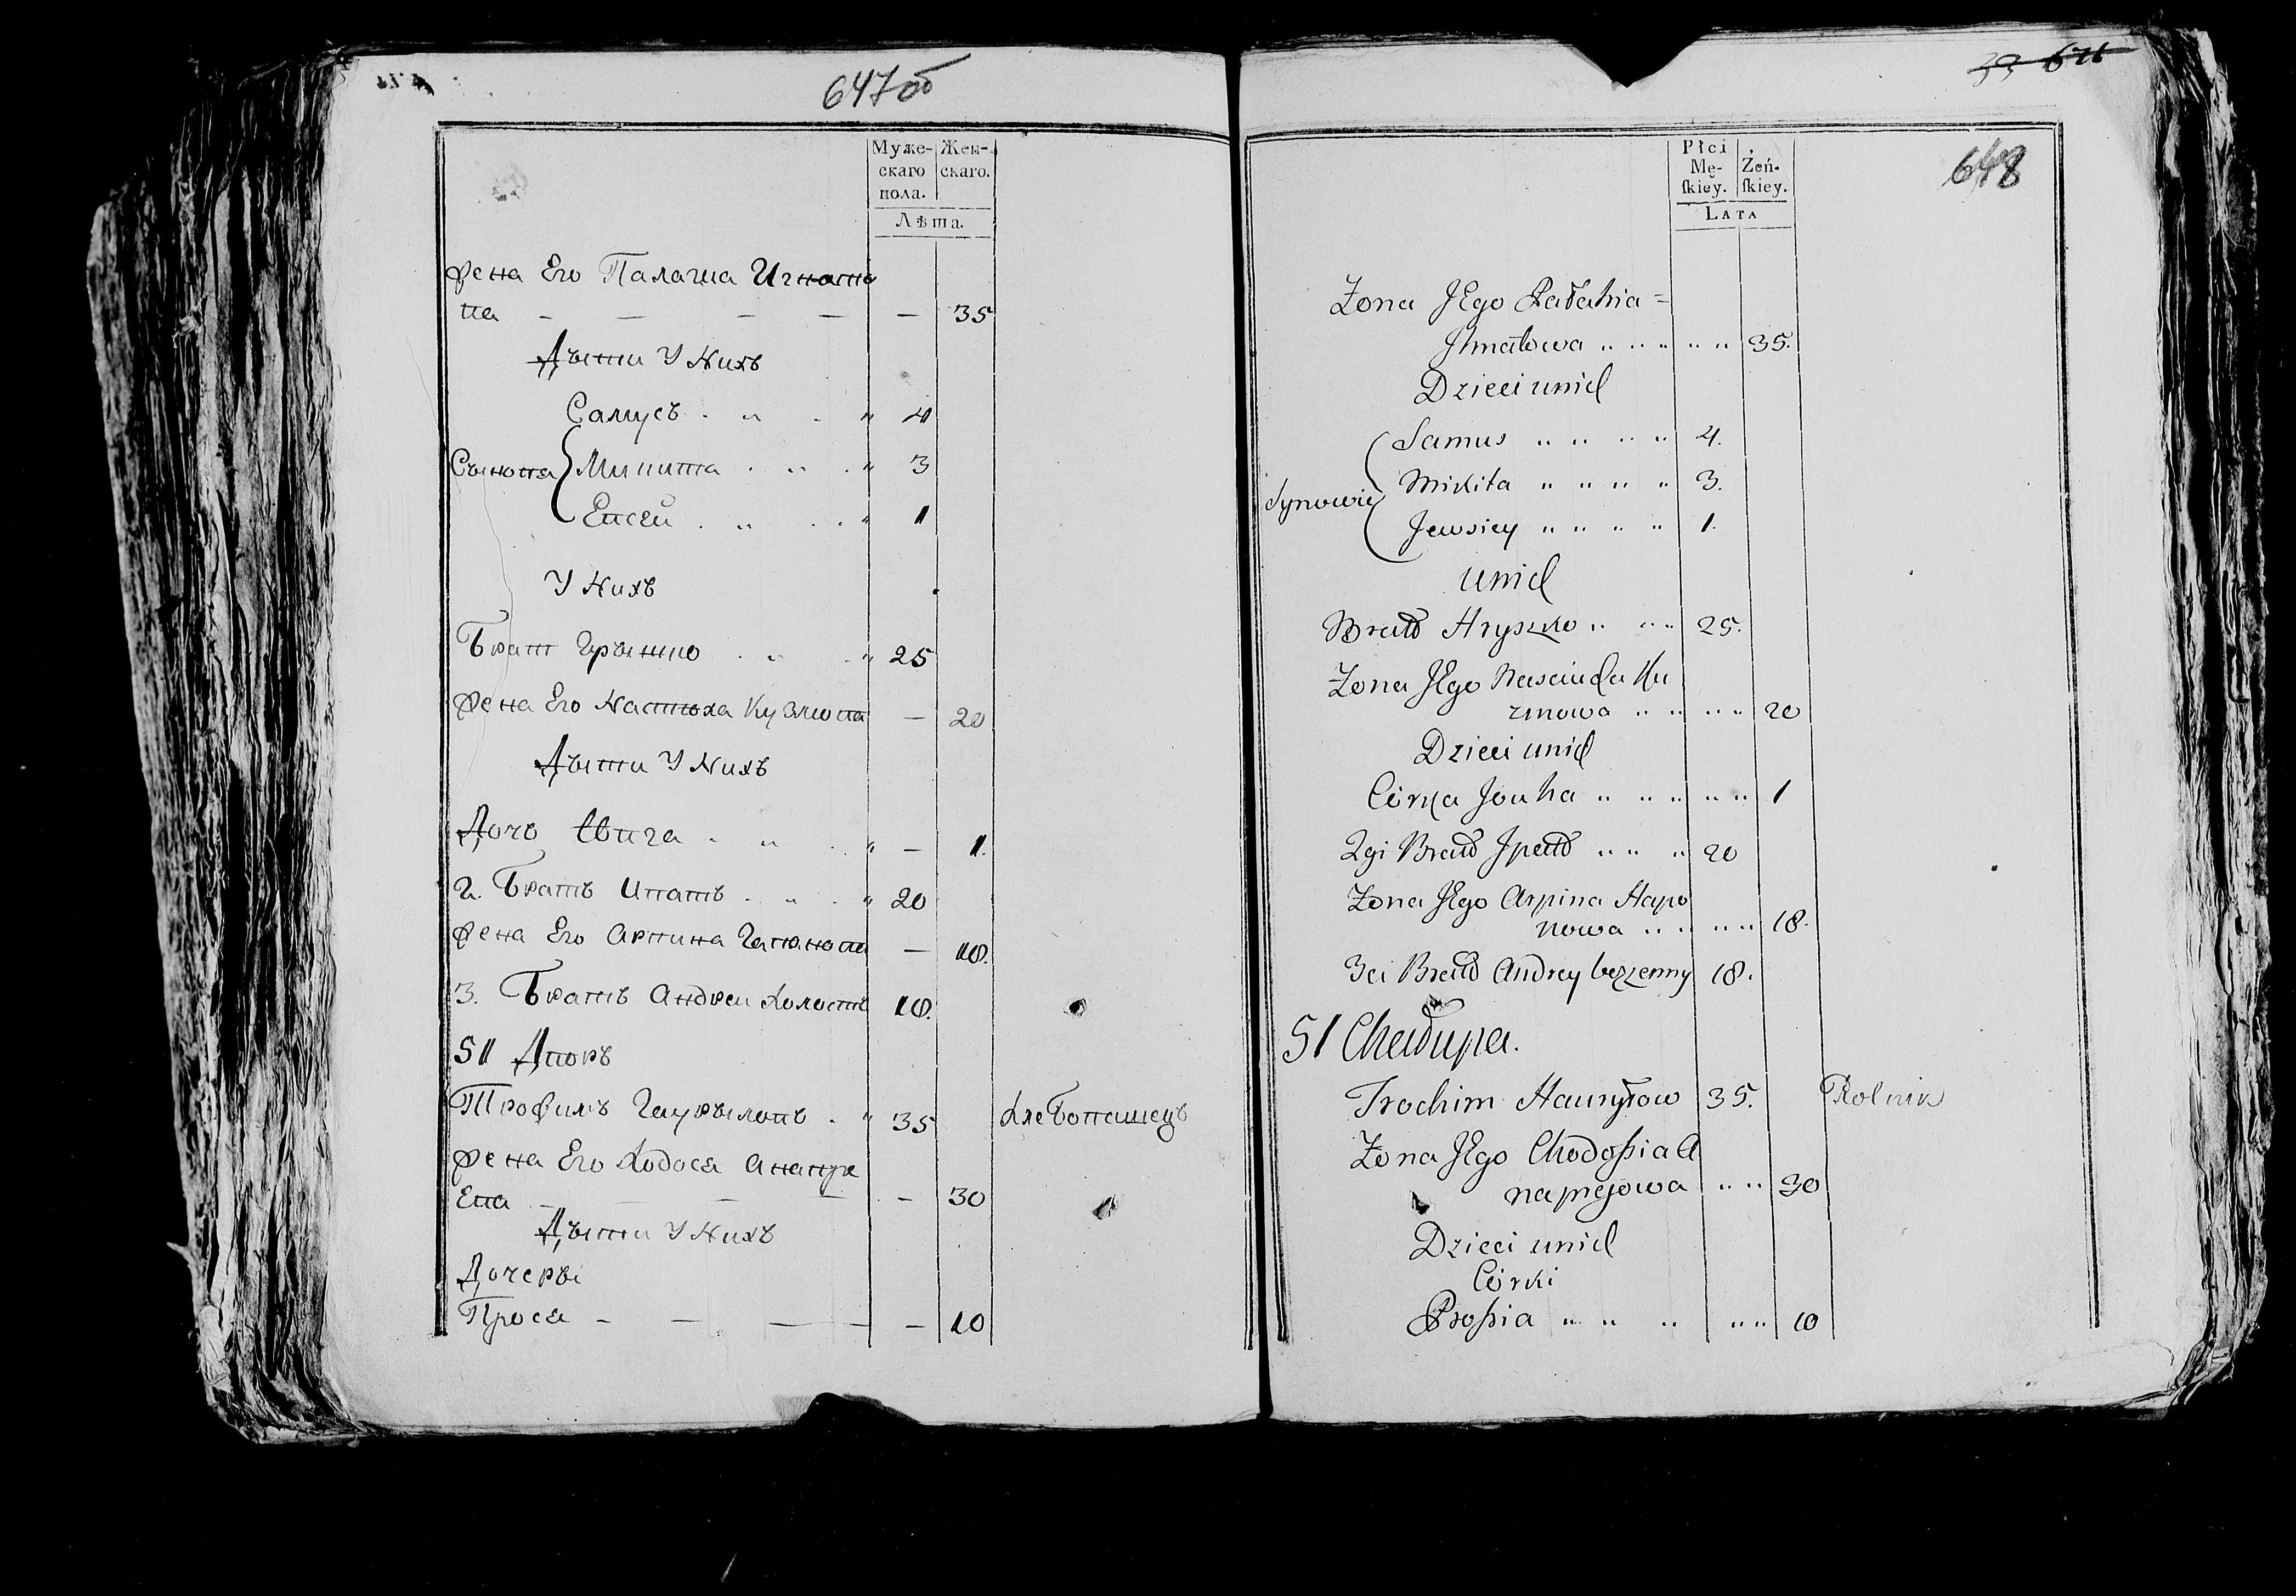 647об
Муже-
скаго
пола.
Жен-
скаго.
Лѣта.
Жена Его Палагиа Игнатов
па — — — — — 35
Дѣти У Нихъ
Самусъ . „ . „ 4
Сынова Микита . „ . „ 3
Евсей . „ . . „ 1
У Нихъ
Брат Грышко . „ . „ 25
Жена Его Настюха Кузмова — 20
Дѣти У Нихъ
Дочь Евга . „ . „ — 1.
2. Братъ Ипатъ . „ . „ 20
Жена Его Арпина Гапонова — 18.
3. Братъ Андреи Холостъ 18.
51 Дворъ
Трофимъ Гаурыловъ . „ 35 Хлебопашецъ
Жена Его Ходося Ананре
Ева — — — — 30
Дѣти У Нихъ
Дочеры
Прося — — — — — 10
648
Płci
Mę-
skiey.
Żeń-
skiey.
LATA
Zona JEgo Pałahia =
Jhnatowa „ „ „ „ „ 35.
Dzieci unich
Samus „ „ „ „ 4.
Synowie Mikita „ „ „ „ 3.
Jewsiey „ „ „ „ 1.
unich
Bratt Hryszko „ „ „ 25.
Zona JEgo Nasciucha Ku
zmowa „ „ „ „ 20
Dzieci unich
Córka Jouha „ „ „ „ „ 1
2gi Bratt Jpatt „ „ „ 20
Zona JEgo Arpina Hapo
nowa „ „ „ „ 18.
3ci Bratt Andrey bezzenny 18.
51 Chałupa.
Trochim Hauryłow 35. Rolnik
Zona JEgo Chodosia A
naprejowa „ „ 30
Dzieci unich
Córki
Prosia „ „ „ „ „ 10